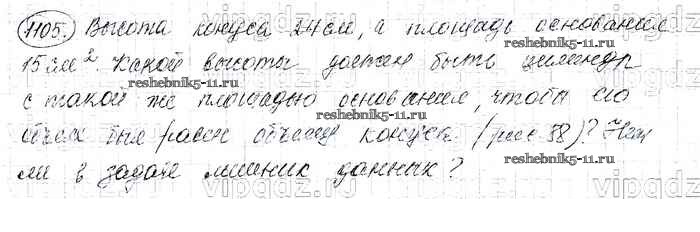 1105. Высота конуса 24 см, а площадь основания
15 см² Какой высоты должен быть цилиндр
reshebnik5-11.ru
reshebnik5-11.ru
с такой же площадью основания, чтобы его
reshebnik5-11.ru
объем был равен объему конуса (рис 88)? Нет
reshebnik5-11.ru
ли в задаче лишних данных?
vipgdz.ru